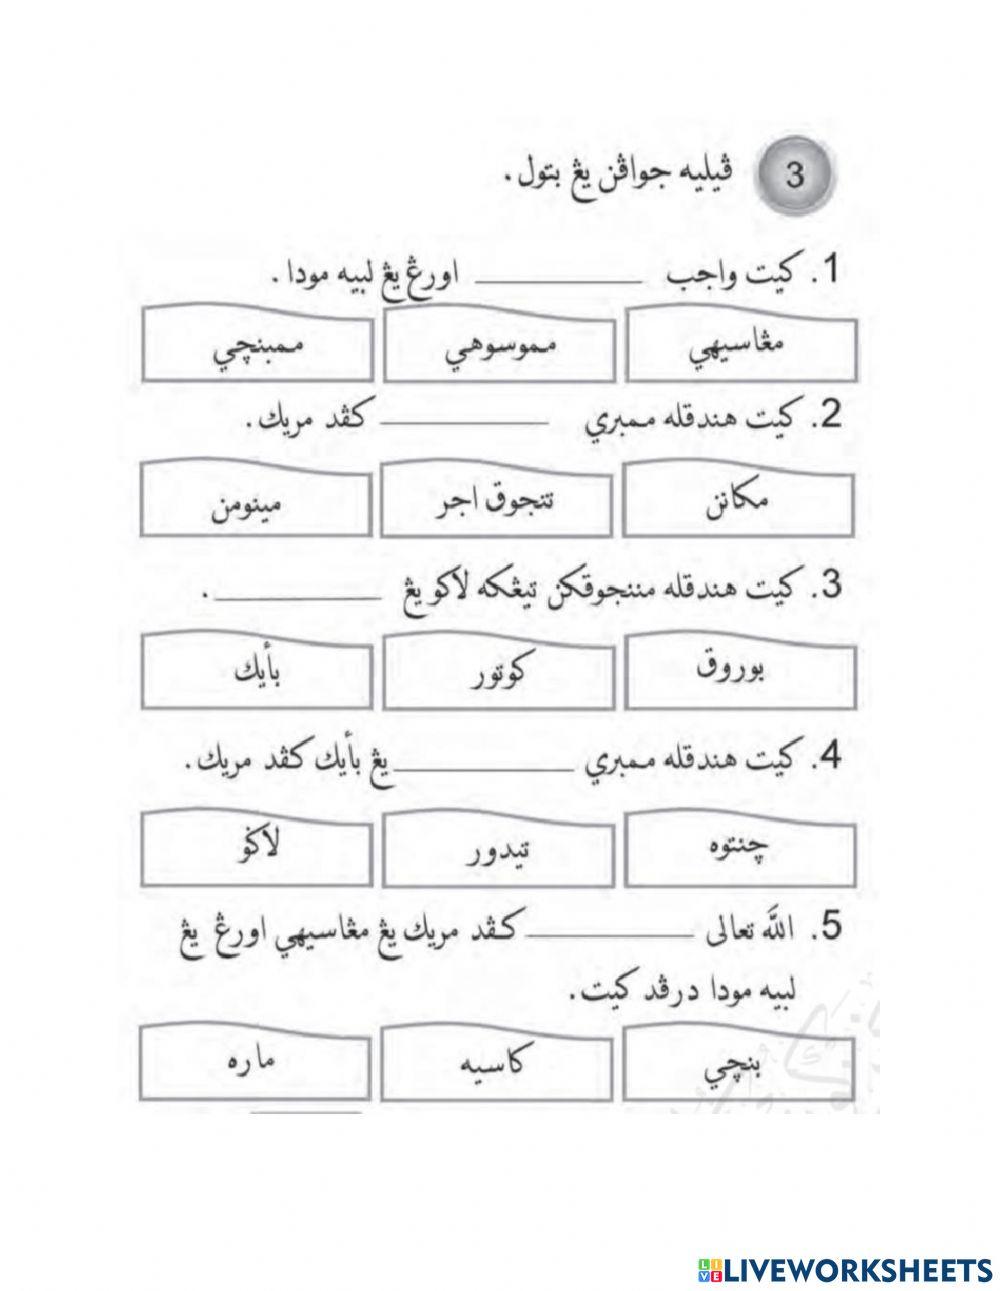 3 ڤيليه جواڤن يڠ بتول.
1. كيت واجب ________ اورڠ يڠ لبيه مودا.
مڠاسيهي مموسوهي ممبنچي
2. كيت هندقله ممبري ________ كڤد مريك.
مكانن تنجوق اجر مينومن
3. كيت هندقله مننجوقكن تيڠكه لاكو يڠ ________.
بوروق كوتور بأيك
4. كيت هندقله ممبري ________ يڠ بأيك كڤد مريك.
چنتوه تيدور لاݢو
5. الله تعالى ________ كڤد مريك يڠ مڠاسيهي اورڠ يڠ
لبيه مودا درڤد كيت.
بنچي كاسيه ماره
LIVE LIVEWORKSHEETS